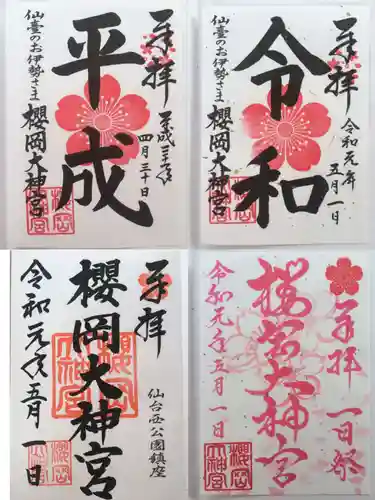 奉拝
平成三十一年
四月三十日
平成
仙臺のお伊勢さま
櫻岡大神宮
奉拝
令和元年
五月一日
令和
仙臺のお伊勢さま
櫻岡大神宮
奉拝
仙台西公園鎮座
櫻岡大神宮
令和元年五月一日
奉拝 一日祭
櫻岡大神宮
令和元年五月一日